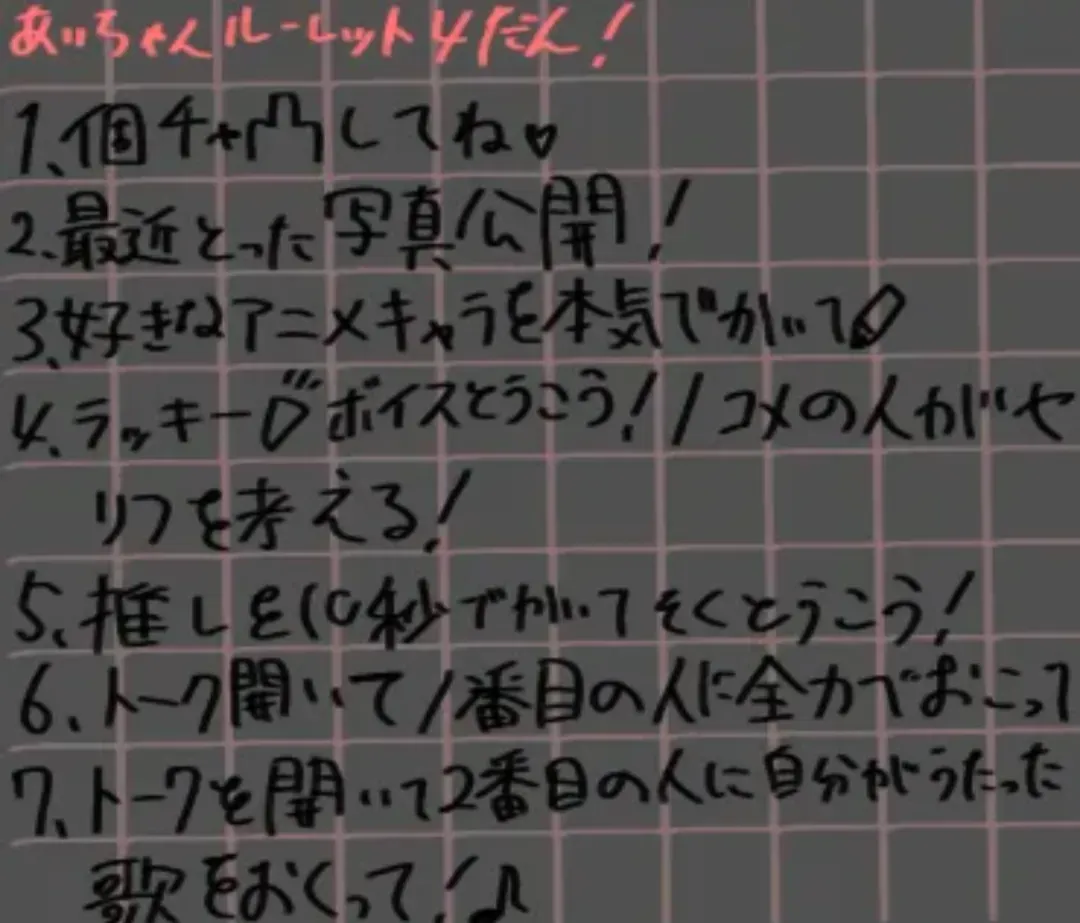 あいちゃんルーレット4だん!
1、個チャ凸してね♡
2、最近とった写真公開!
3、好きなアニメキャラを本気でかいて
4、ラッキーボイスとうこう!1コメの人がセ
リフを考える!
5、推しを10秒でかいてそくとうこう!
6、トーク開いて1番目の人に全力でおこって
7、トークを開いて2番目の人に自分がうたった
歌をおくって!♪